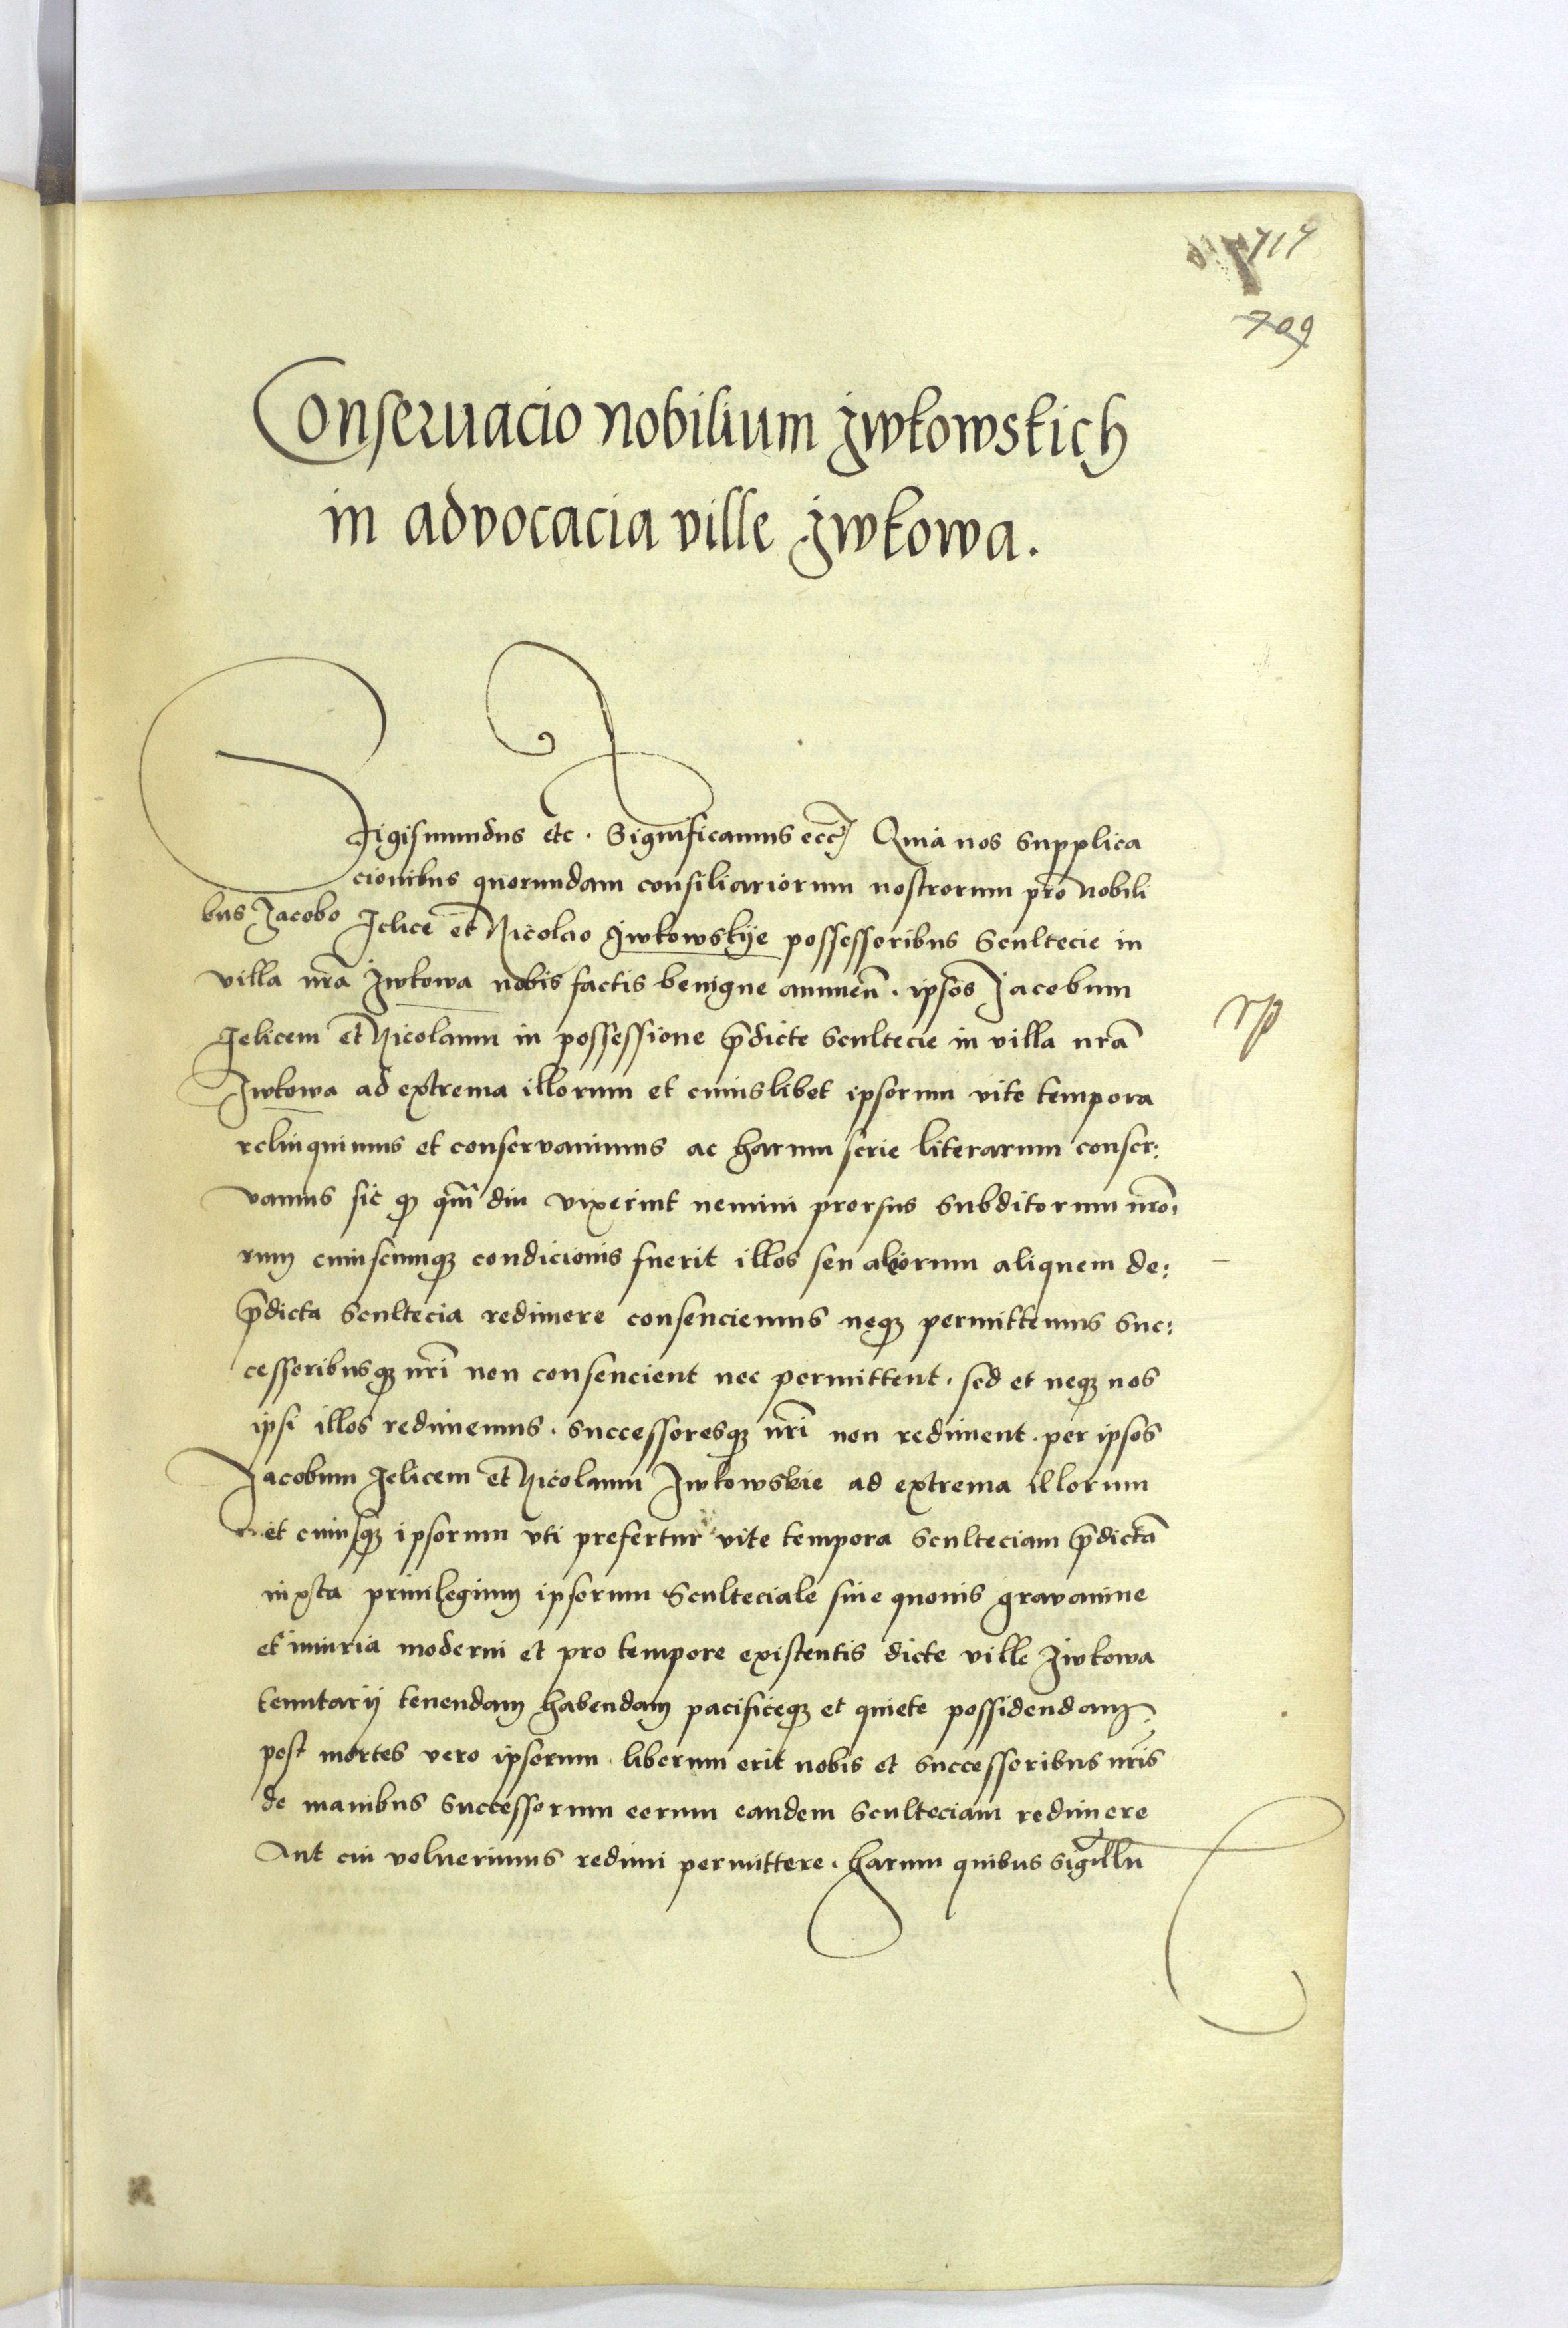 717
709
Conservacio nobilium Jwkowskich
in advocacia ville Jwkowa.
Sigismundus etc. Significamus ecc Quia nos supplica
cionibus quorundam consiliariorum nostrorum pro nobili
bus Jacobo Jelice et Nicolao Jwkowskije possessoribus Scultecie in
villa nrã Jwkowa nobis factis benigne annuen̄. ipsos Jacobum
Jelicem et Nicolaum in possessione p̄dicte Scultecie in villa nrã
Jwkowa ad extrema illorum et cuiuslibet ipsorum vite tempora
relinquimus et conservavimus ac harum serie literarum conser:
vamus sic qꝫ qm̃ diu vixerint nemini prorsus subditorum nr̃o:
rum cuiuscumqꝫ condicionis fuerit illos seu aliorum aliquem de:
p̄dicta Scultecia redimere consenciemus neqꝫ permittemus Suc:
cessoribusqꝫ nr̃i non consencient nec permittent. sed et neqꝫ nos
ipsi illos redimemus. successoresqꝫ nr̃i non rediment. per ipsos
Jacobum Jelicem et Nicolaum Jwkowskie ad extrema illorum
et cuiusqꝫ ipsorum vti prefertur vite tempora Sculteciam p̄dictã
iuxta privilegium ipsorum Sculteciale sine quovis gravamine
et iniuria moderni et pro tempore existentis dicte ville Jwkowa
tenutarij tenendam habendam pacificeqꝫ et quiete possidendam
post mortes vero ipsorum. liberum erit nobis et successoribus nr̃is
de manibus successorum eorum eandem Sculteciam redimere
Aut cui voluerimus redimi permittere. harum quibus sigillũ